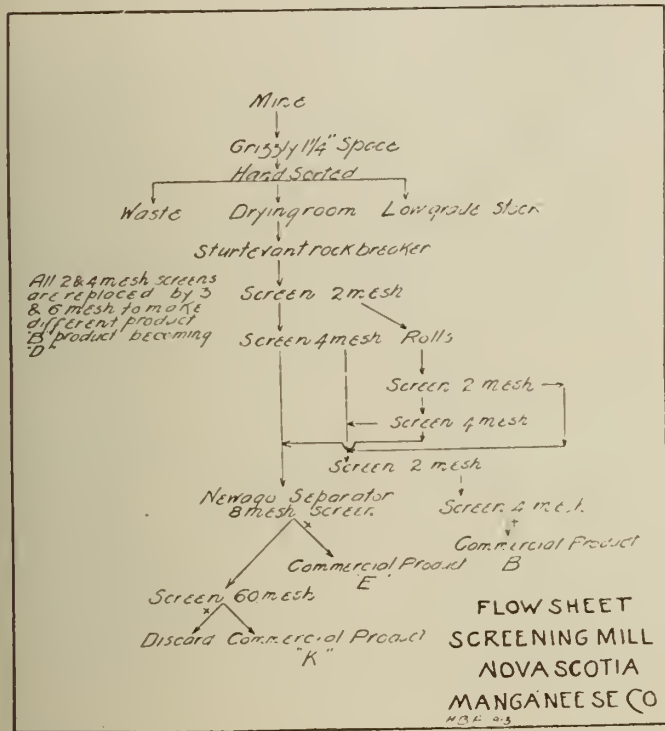 Mine
Grizzly 1¼" Space
Hand Sorted
Waste Drying room Low grade Stock
Sturtevant rock breaker
All 2 & 4 mesh screens
are replaced by 3
& 6 mesh to make
different product
"B" product becoming
"D"
Screen 2 mesh
Screen 4 mesh Rolls
Screen 2 mesh
Screen 4 mesh
Screen 2 mesh
Newago Separator
8 mesh screen
Screen 4 mesh
Commercial Product
B
Commercial Product
"E"
Screen 60 mesh
Discard Commercial Product
"K"
FLOW SHEET
SCREENING MILL
NOVA SCOTIA
MANGANEESE CO